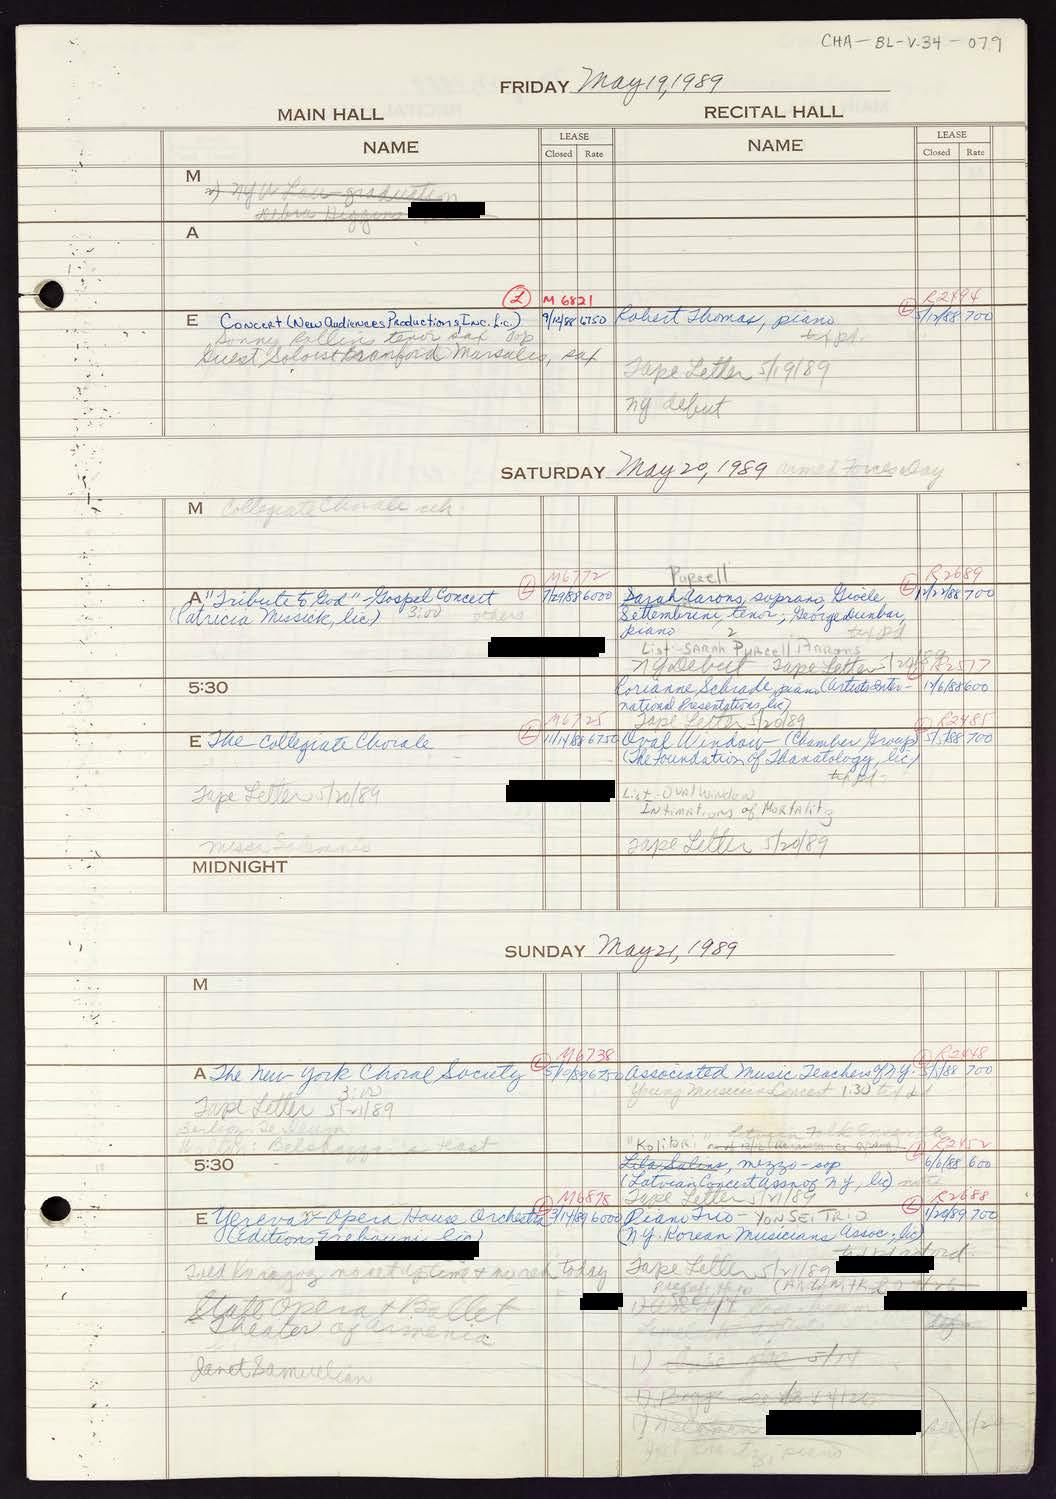 CHA-BL-V.34-079
FRIDAY May 19, 1989
MAIN HALL
RECITAL HALL
NAME
LEASE
Closed Rate
NAME
LEASE
Closed Rate
M
NYU Law graduation
Debra Higgins
A
L M 6821
L R2494
E Concert (New Audiences Productions, Inc. Lic.) 9/12/88 6750
Sonny Rollins tenor sax
Guest Soloist Branford Marsalis, sax
Robert Thomas, piano 5/12/88 700
txt pd.
Tape Letter 5/19/89
NY debut
SATURDAY May 20, 1989 Armed Forces Day
M Collegiate Chorale reh.
L M6772
A "Tribute to God" - Gospel Concert 7/29/88 6000
(Patricia Missick, lic) 3:00 others
Purcell
L R2689
Sarah Aarons, soprano, Gioele 12/22/88 700
Settembrini, tenor, George Dunbar,
piano
List - SARAH PURCELL AARONS
NY Debut Tape Letter 5/20/89
R2577
5:30
Corianne Schrade, piano (Artists Inter- 12/6/88 600
national Presentations, lic)
Tape Letter 5/20/89
L M6725
E The Collegiate Chorale 11/14/88 6750
Tape Letter 5/20/89
Missa Solemnis
R2485
Oval Window - (Chamber Group) 5/5/88 700
(The Foundation of Thanatology, lic)
txt pd-
List - OVAL WINDOW
INTIMATIONS OF MORTALITY
Tape Letter 5/20/89
MIDNIGHT
SUNDAY May 21, 1989
M
L M6738
A The New York Choral Society 5/10/89 6750
3:00
Tape Letter 5/21/89
Berlioz Te Deum
Walton: Belshazzar's Feast
R2448
Associated Music Teachers of N.Y. 5/5/88 700
Young Musicians Concert 1:30 txt pd
"Kolibri" Latvian Folk Ensemble
R2452
5:30
Lila Salins, mezzo-sop 6/6/88 600
(Latvian Concert Assn of N.Y., lic) note
Tape Letter 5/21/89
L M6878
E Yerevan Opera House Orchestra 3/14/89 6000
(Editions Erebouni lic)
Told no set up time & no reh today
State Opera & Ballet
Theater of Armenia
Janet Samuelian
L R2688
Piano Trio - YONSEI TRIO 1/20/89 700
(N.Y. Korean Musicians Assoc., lic)
Tape Letter 5/21/89
piano